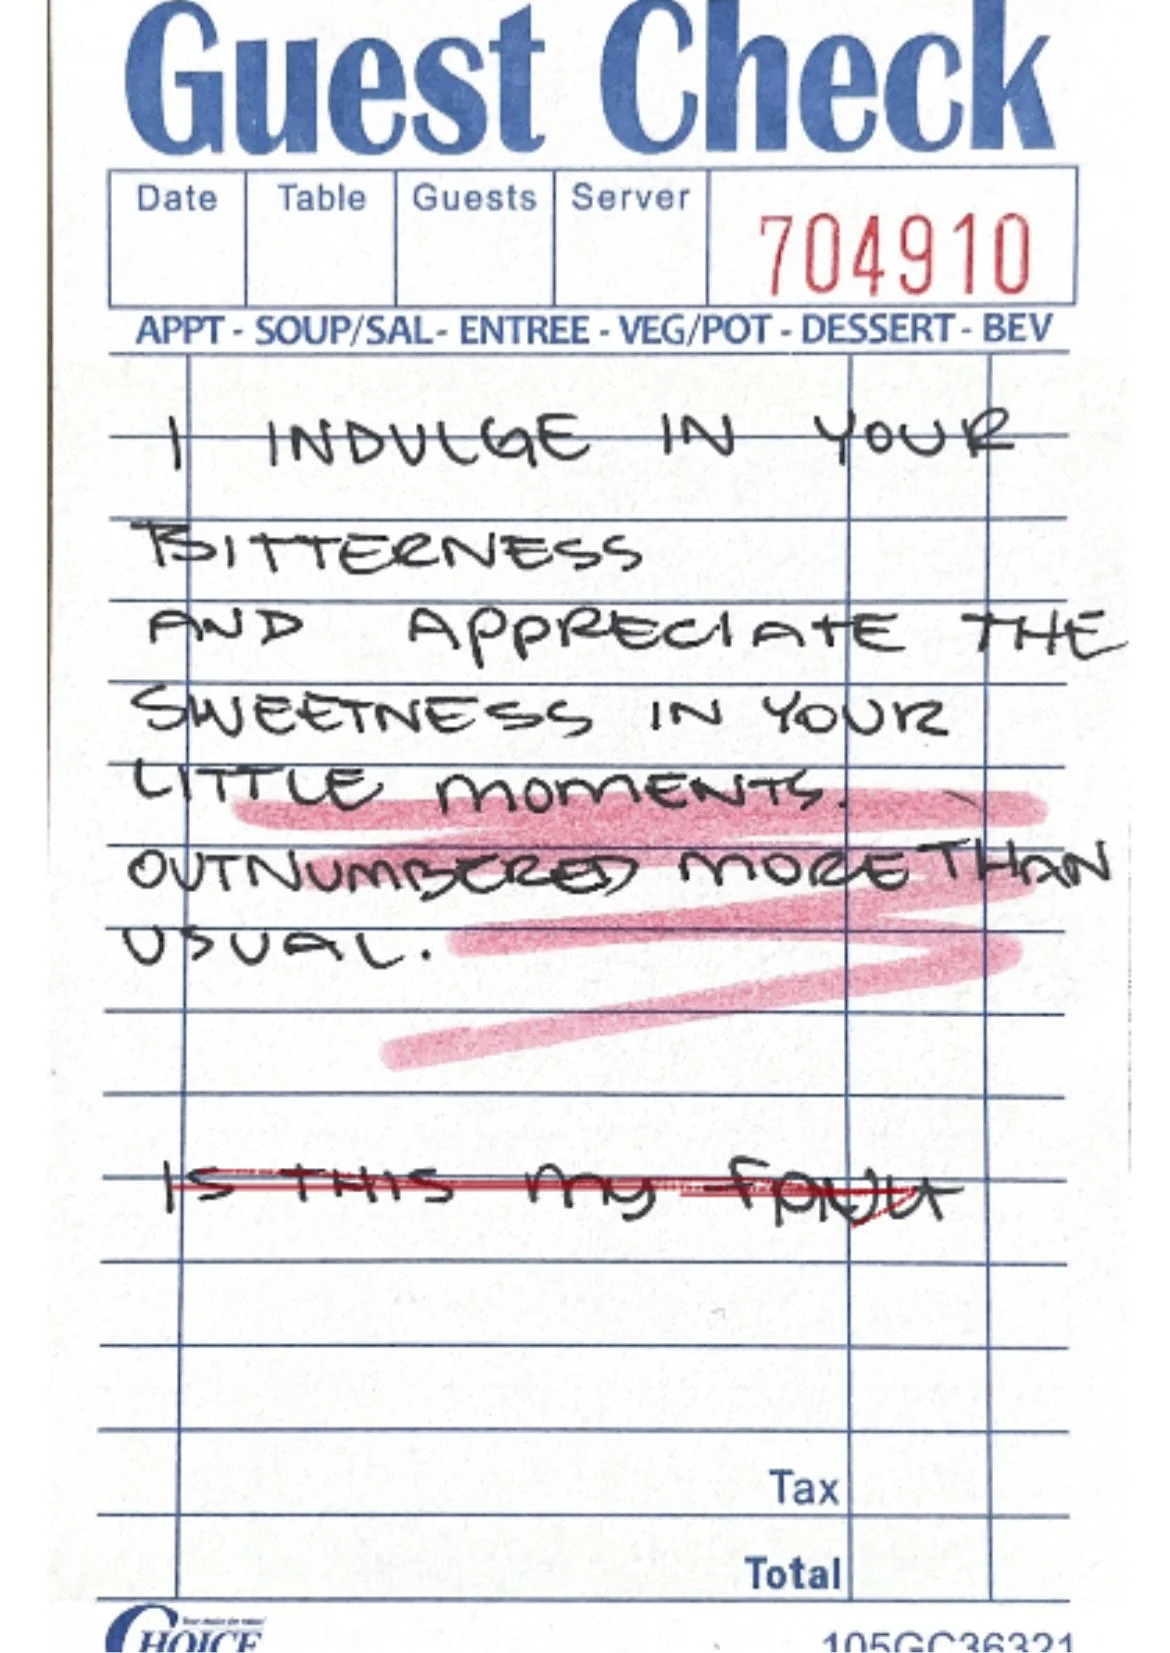 Guest Check
Date Table Guests Server 704910
APPT - SOUP/SAL- ENTREE - VEG/POT - DESSERT - BEV
I INDULGE IN YOUR
BITTERNESS
AND APPRECIATE THE
SWEETNESS IN YOUR
LITTLE MOMENTS.
OUTNUMBERED MORE THAN
USUAL.
IS THIS MY FAULT
Tax
Total
CHOICE 105GC36321